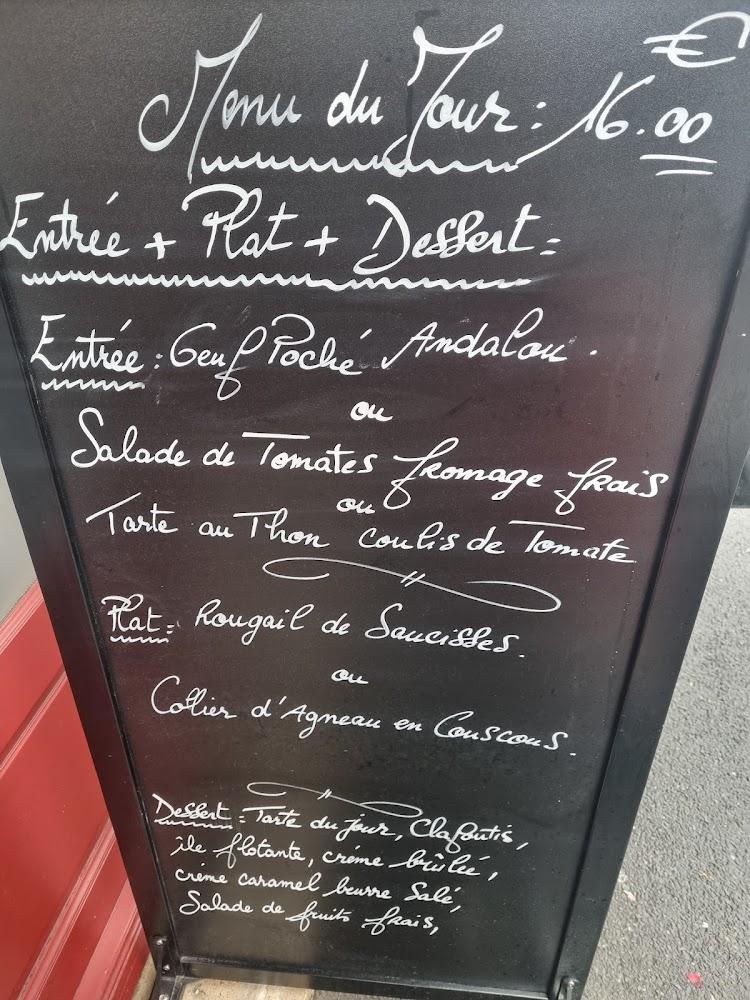 Menu du Jour : 16.00 €
Entrée + Plat + Dessert :
Entrée : Oeuf Poché Andalou.
ou
Salade de Tomates fromage frais
ou
Tarte au Thon coulis de Tomate
Plat : Rougail de Saucisses.
ou
Collier d'Agneau en Couscous.
Dessert : Tarte du jour, Clafoutis,
île flotante, crème brûlée,
crème caramel beurre Salé,
Salade de fruits frais,